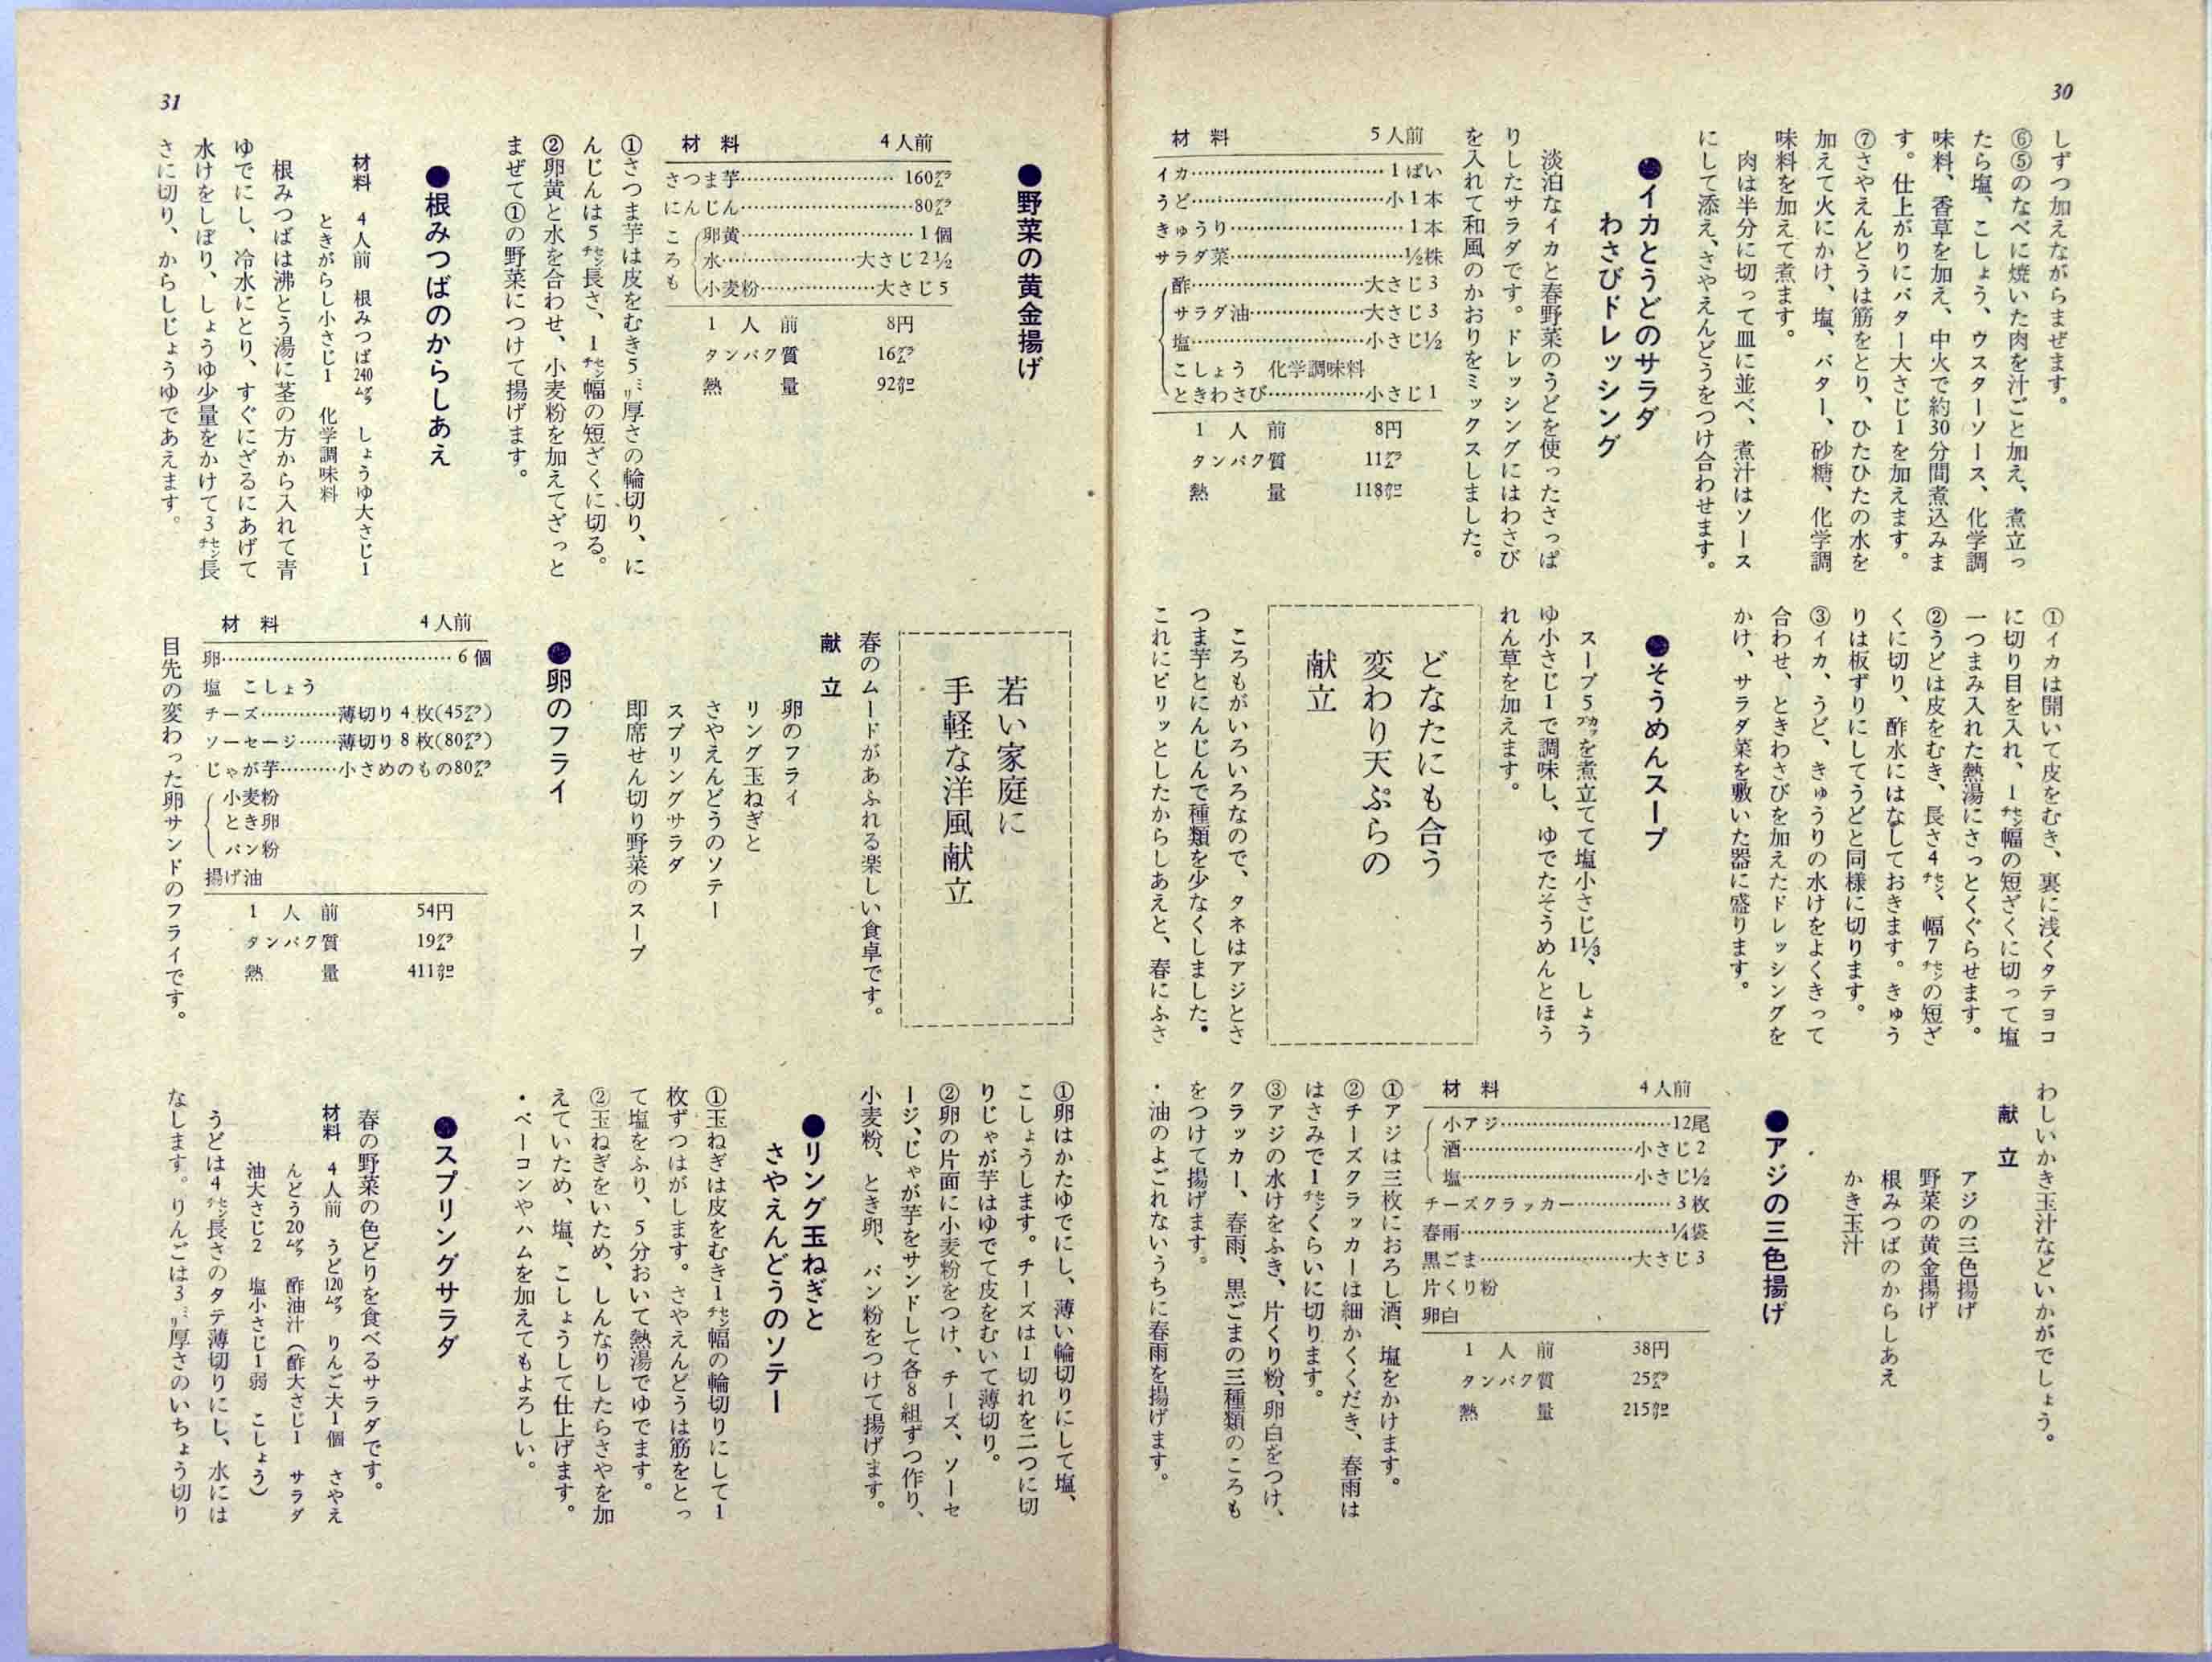 30
しずつ加えながらまぜます。
⑥⑤のなべに焼いた肉を汁ごと加え、煮立っ
たら塩、こしょう、ウスターソース、化学調
味料、香草を加え、中火で約30分間煮込みま
す。仕上がりにバター大さじ1を加えます。
⑦さやえんどうは筋をとり、ひたひたの水を
加えて火にかけ、塩、バター、砂糖、化学調
味料を加えて煮ます。
肉は半分に切って皿に並べ、煮汁はソース
にして添え、さやえんどうをつけ合わせます。
●イカとうどのサラダ
わさびドレッシング
淡泊なイカと春野菜のうどを使ったさっぱ
りしたサラダです。ドレッシングにはわさび
を入れて和風のかおりをミックスしました。
材料 5人前
イカ…………1ぱい
うど…………小1本
きゅうり…………1本
サラダ菜…………½株
酢…………大さじ3
サラダ油…………大さじ3
塩…………小さじ½
こしょう 化学調味料
ときわさび…………小さじ1
1人前 8円
タンパク質 11㌘
熱量 118㌍
①イカは開いて皮をむき、裏に浅くタテヨコ
に切り目を入れ、1㌢幅の短ざくに切って塩
一つまみ入れた熱湯にさっとくぐらせます。
②うどは皮をむき、長さ4㌢、幅7㌢の短ざ
くに切り、酢水にはなしておきます。きゅう
りは板ずりにしてうどと同様に切ります。
③イカ、うど、きゅうりの水けをよくきって
合わせ、ときわさびを加えたドレッシングを
かけ、サラダ菜を敷いた器に盛ります。
●そうめんスープ
スープ5㌍を煮立てて塩小さじ1⅓、しょう
ゆ小さじ1で調味し、ゆでたそうめんとほう
れん草を加えます。
どなたにも合う
変わり天ぷらの
献立
ころもがいろいろなので、タネはアジとさ
つま芋とにんじんで種類を少なくしました。
これにピリッとしたからしあえと、春にふさ
わしいかき玉汁などいかがでしょう。
献立
アジの三色揚げ
野菜の黄金揚げ
根みつばのからしあえ
かき玉汁
●アジの三色揚げ
材料 4人前
小アジ…………12尾
酒…………小さじ2
塩…………小さじ½
チーズクラッカー…………3枚
春雨…………¼袋
黒ごま…………大さじ3
片くり粉
卵白
1人前 38円
タンパク質 25㌘
熱量 215㌍
①アジは三枚におろし酒、塩をかけます。
②チーズクラッカーは細かくくだき、春雨は
はさみで1㌢くらいに切ります。
③アジの水けをふき、片くり粉、卵白をつけ、
クラッカー、春雨、黒ごまの三種類のころも
をつけて揚げます。
・油のよごれないうちに春雨を揚げます。
31
●野菜の黄金揚げ
材料 4人前
さつま芋…………160㌘
にんじん…………80㌘
ころも
卵黄…………1個
水…………大さじ2½
小麦粉…………大さじ5
1人前 8円
タンパク質 16㌘
熱量 92㌍
①さつま芋は皮をむき5㍉厚さの輪切り、に
んじんは5㌢長さ、1㌢幅の短ざくに切る。
②卵黄と水を合わせ、小麦粉を加えてざっと
まぜて①の野菜につけて揚げます。
●根みつばのからしあえ
材料 4人前 根みつば240㌘ しょうゆ大さじ1
ときがらし小さじ1 化学調味料
根みつばは沸とう湯に茎の方から入れて青
ゆでにし、冷水にとり、すぐにざるにあげて
水けをしぼり、しょうゆ少量をかけて3㌢長
さに切り、からしじょうゆであえます。
若い家庭に
手軽な洋風献立
春のムードがあふれる楽しい食卓です。
献立
卵のフライ
リング玉ねぎと
さやえんどうのソテー
スプリングサラダ
即席せん切り野菜のスープ
●卵のフライ
材料 4人前
卵…………6個
塩 こしょう
チーズ…………薄切り4枚(45㌘)
ソーセージ……薄切り8枚(80㌘)
じゃが芋………小さめのもの80㌘
小麦粉
とき卵
パン粉
揚げ油
1人前 54円
タンパク質 19㌘
熱量 411㌍
目先の変わった卵サンドのフライです。
①卵はかたゆでにし、薄い輪切りにして塩、
こしょうします。チーズは1切れを二つに切
りじゃが芋はゆでて皮をむいて薄切り。
②卵の片面に小麦粉をつけ、チーズ、ソーセ
ージ、じゃが芋をサンドして各8組ずつ作り、
小麦粉、とき卵、パン粉をつけて揚げます。
●リング玉ねぎと
さやえんどうのソテー
①玉ねぎは皮をむき1㌢幅の輪切りにして1
枚ずつはがします。さやえんどうは筋をとっ
て塩をふり、5分おいて熱湯でゆでます。
②玉ねぎをいため、しんなりしたらさやを加
えていため、塩、こしょうして仕上げます。
・ベーコンやハムを加えてもよろしい。
●スプリングサラダ
春の野菜の色どりを食べるサラダです。
材料 4人前 うど120㌘ りんご大1個 さやえ
んどう20㌘ 酢油汁(酢大さじ1 サラダ
油大さじ2 塩小さじ1弱 こしょう)
うどは4㌢長さのタテ薄切りにし、水には
なします。りんごは3㍉厚さのいちょう切り